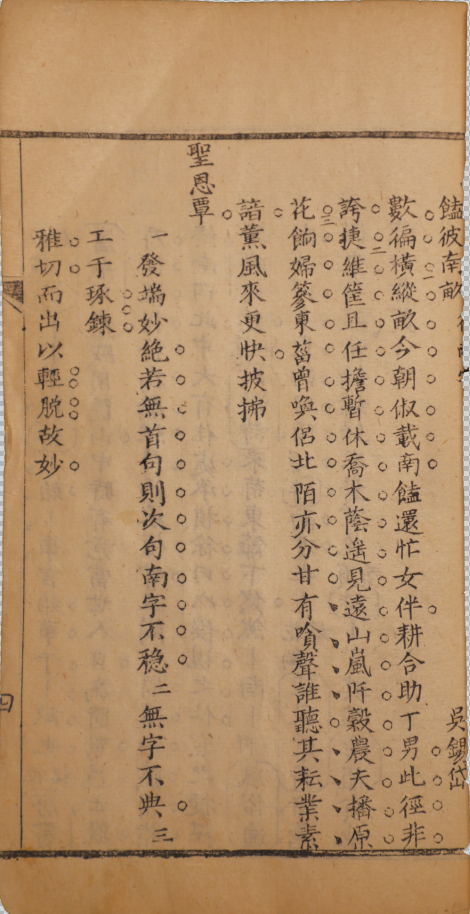 饁彼南畝
吳錫岱
數徧橫縱畝今朝俶載南饁還忙女伴耕合助丁男此徑非
誇捷維筐且任擔暫休喬木蔭遙見遠山嵐阡穀農夫播原
花餉婦簪東菑曾喚侶北陌亦分甘有嗿聲誰聽其耘業素
諳薰風來更快披拂
聖恩覃
一發端妙絕若無首句則次句南字不穩二無字不典三
工于琢鍊
雅切而出以輕脫故妙
四